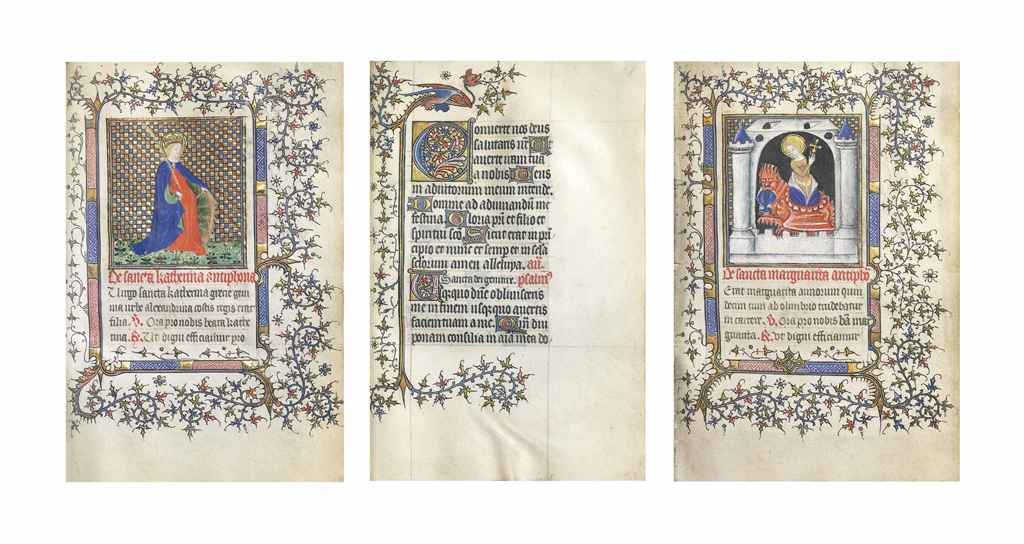 De sancta katherina antiphona
Virgo sancta katherina grecie gem
ma urbe alexandrina costis regis erat
filia. V. Ora pro nobis beata kathe
rina. R. Ut digni efficiamur pro
Converte nos deus
salutaris nr̄ Et
averte iram tuā
a nobis Deus
in adiutorium meum intende.
Domine ad adiuvandū me
festina. Gloria pr̄i et filio et
spiritui scō. Sicut erat in pri
cipio et nunc et semp et in scl̄a
sclorum amen alleluya. añ.
Sancta dei genitrix. psalm
Usquequo dn̄e oblivisceris
me in finem usquequo avertis
faciem tuam a me. Quā diu
ponam consilia in aīa mea do
De sancta margarita antipho
Erat margarita annorum quin
decim cum ab olimbrio tradebatur
in carcere. V. Ora pro nobis bā mar
garita. R. Ut digni efficiamur